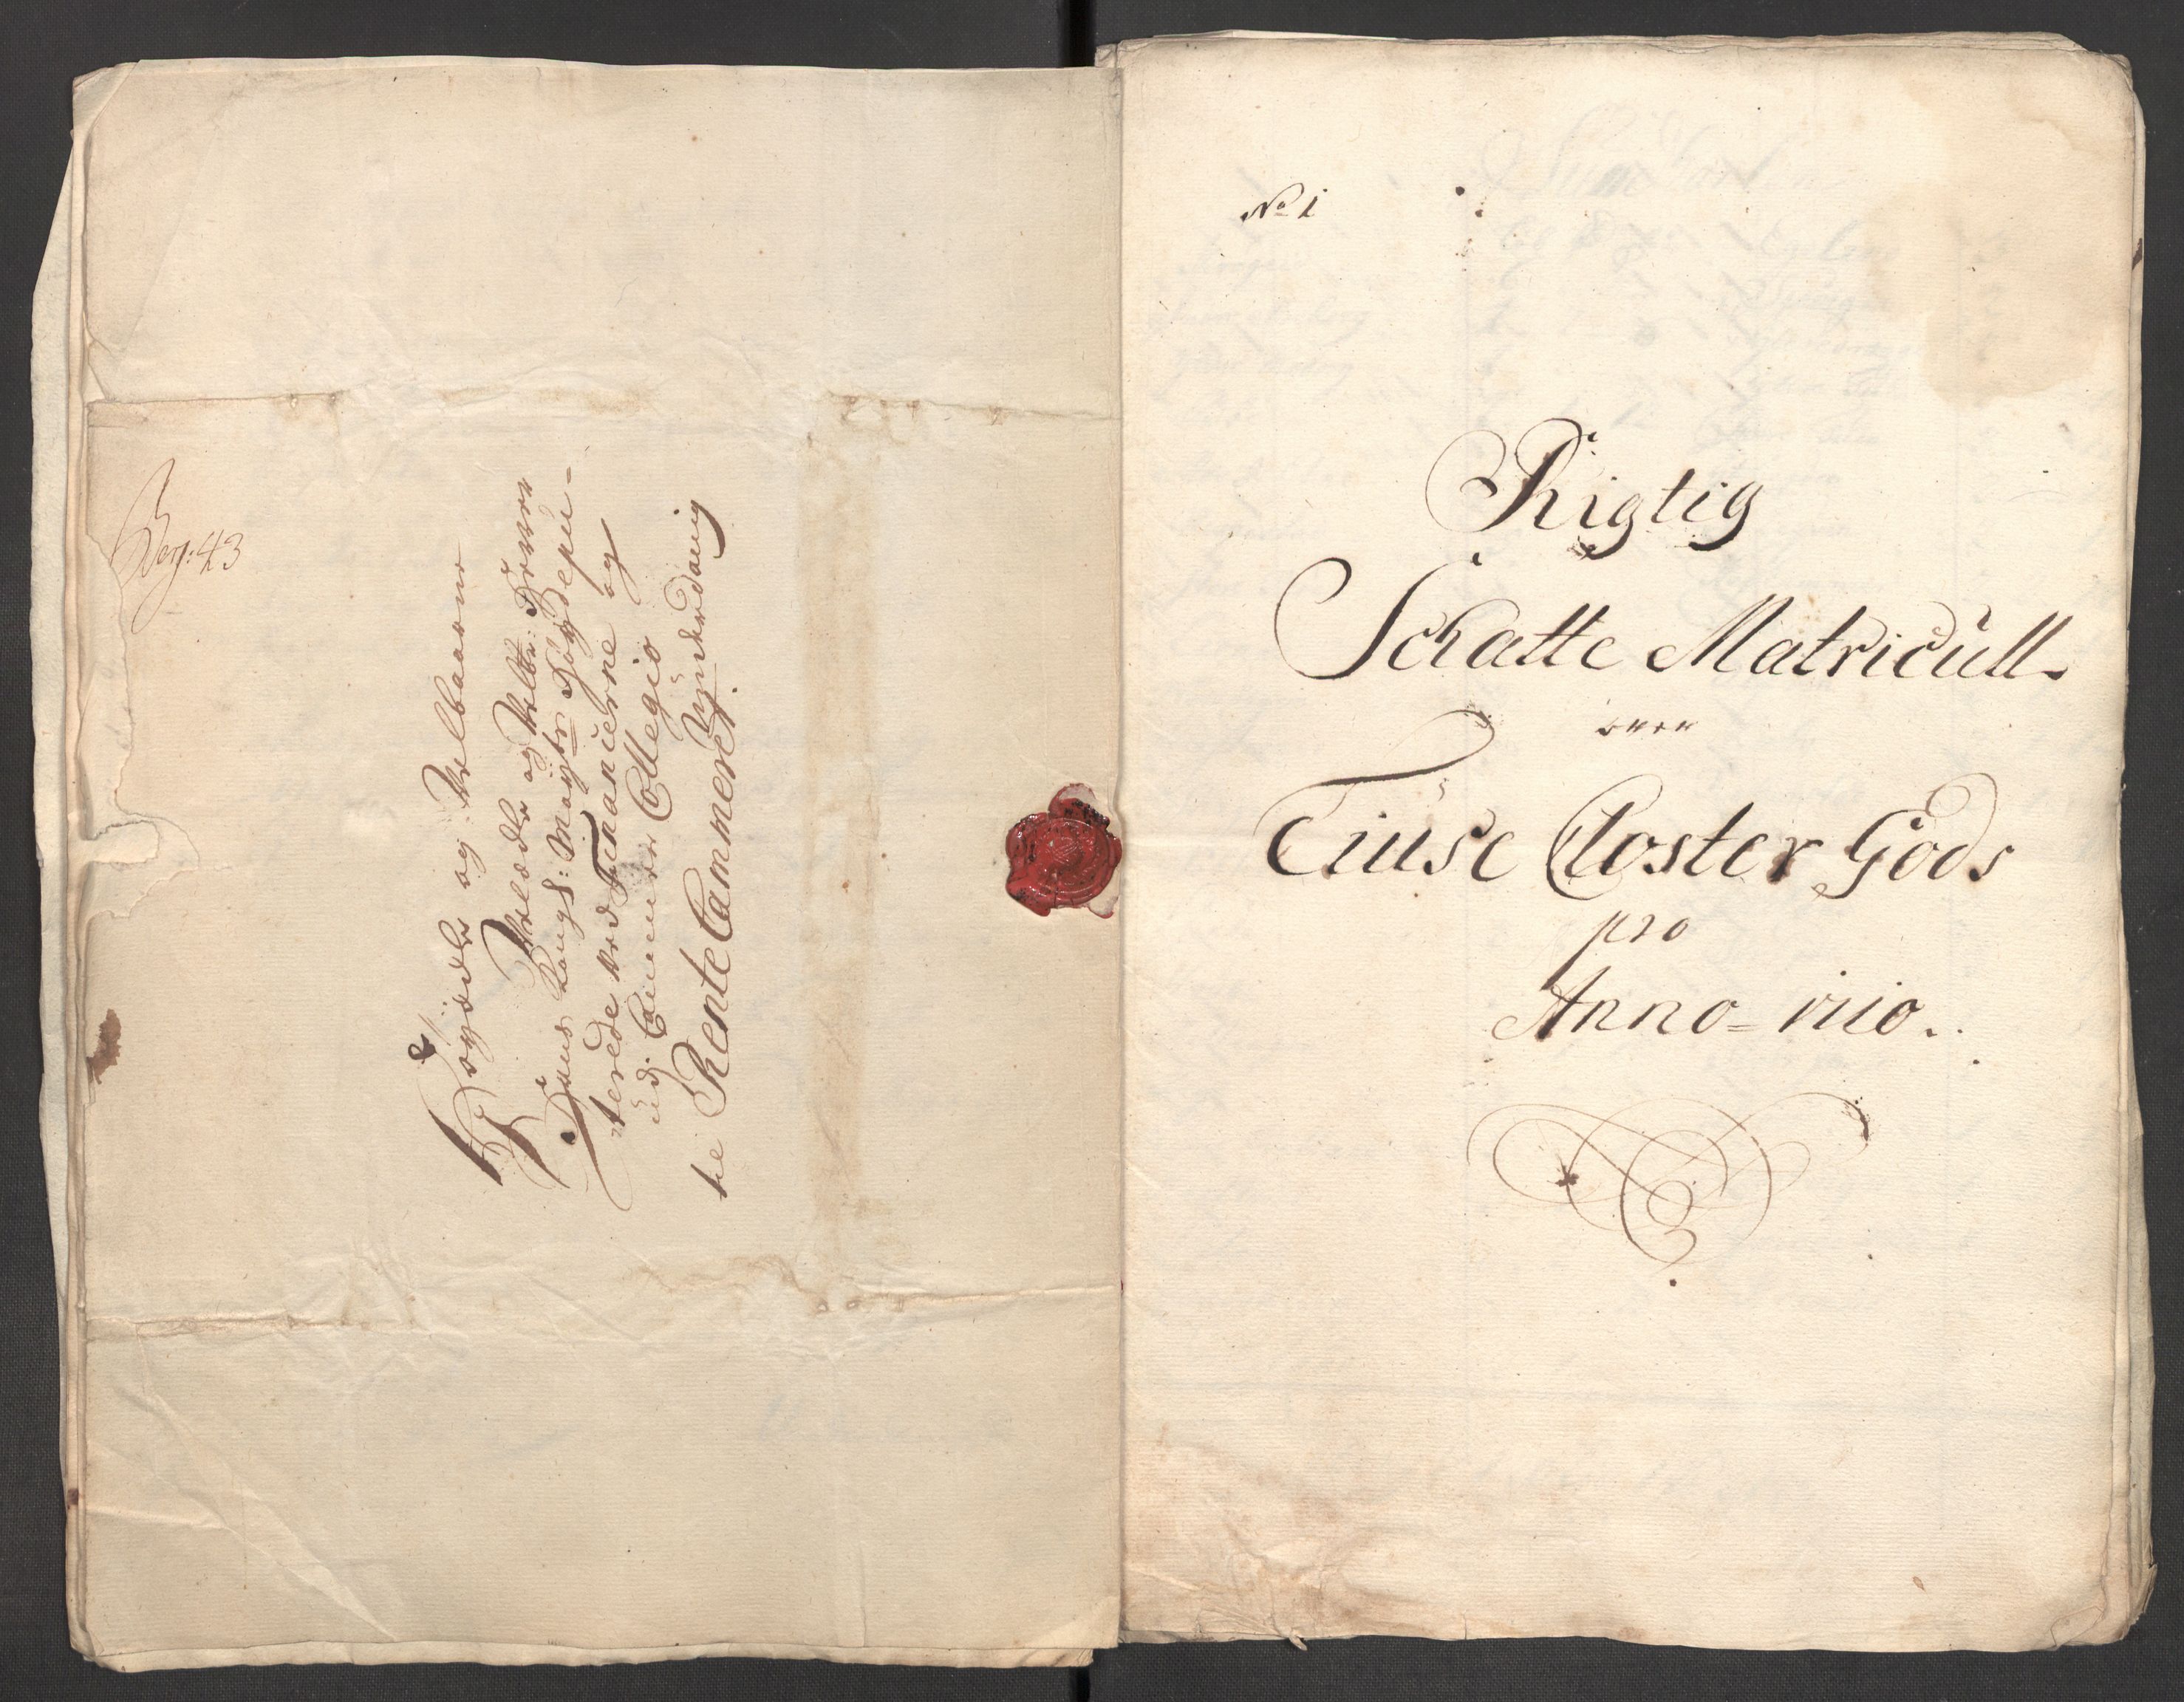 Berg: 43
Høyædle og Velbaarne
Velædle og Velbr: Herrer
Hans Kongl: Mayts Høydepu-
terede ved Financierne og
udi Cammer Collegio
te RenteCammerej Underdanig
No 1
Rigtig
Schatte Matricull
over
Tiuse Closter Gods
pro
Anno = 1710.